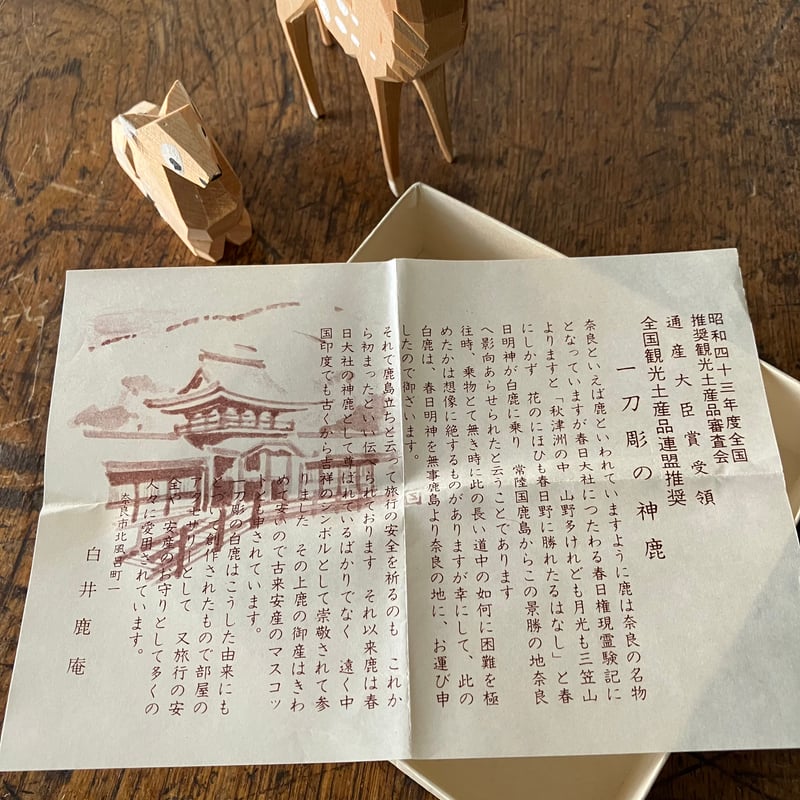 昭和四十三年度全国
推奨観光土産品審査会
通産大臣賞受領
全国観光土産品連盟推奨
一刀彫の神鹿
奈良といえば鹿といわれていますように鹿は奈良の名物
となっていますが春日大社につたわる春日権現霊験記に
よりますと「秋津洲の中 山野多けれども月光も三笠山
にしかず 花のにほひも春日野に勝れたるはなし」と春
日明神が白鹿に乗り 常陸国鹿島からこの景勝の地奈良
へ影向あらせられたと云うことであります
往時、乗物とて無き時に此の長い道中の如何に困難を極
めたかは想像に絶するものがありますが幸にして、此の
白鹿は、春日明神を無事鹿島より奈良の地に、お運び申
したので御ざいます。
それで鹿島立ちと云って旅行の安全を祈るのも これか
ら初まったといい伝えられております それ以来鹿は春
日大社の神鹿として尊ばれているばかりでなく 遠く中
国印度でも古くから吉祥のシンボルとして崇敬されて参
りました その上鹿の御産はきわ
めて安いので古来安産のマスコッ
トと申されています。
一刀彫の白鹿はこうした由来にも
とづく創作されたもので部屋の
アクセサリーとして 又旅行の安
全や 安産のお守りとして多くの
人々に愛用されています。
奈良市北風呂町一
白井鹿庵